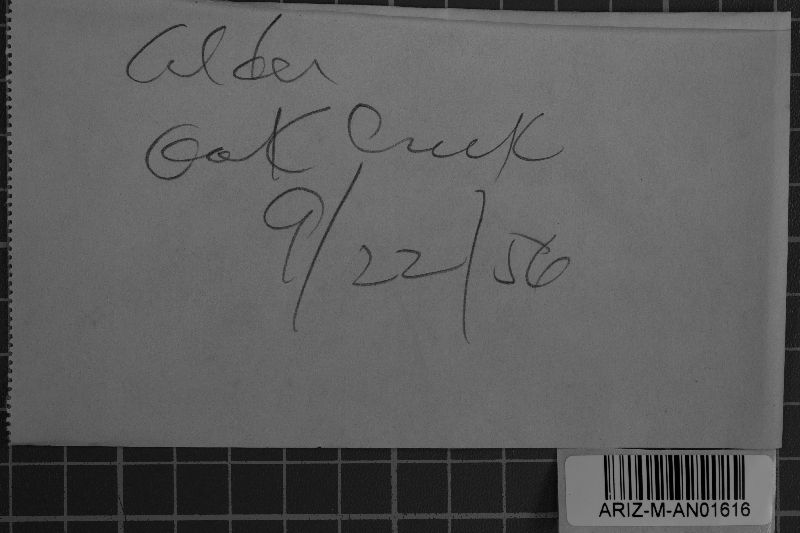 Alder
Oak Creek
9/22/56
ARIZ-M-AN01616